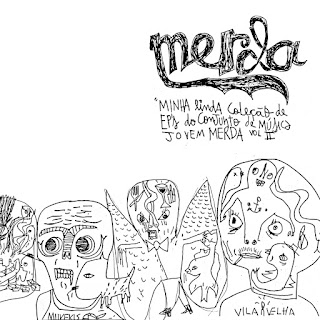 merda
"MINHA linda coleção de
EPs do CONJUNTO de MÚSICA
JOVEM MERDA VOL II
MUKEKIS
VILA VELHA